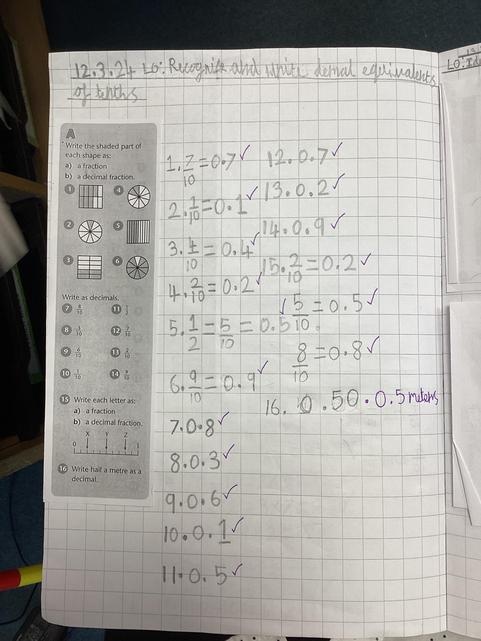 12.3.24 LO: Recognise and write demal equivalents
of tenths
A
Write the shaded part of
each shape as:
a) a fraction
b) a decimal fraction.
1 4
2 5
3 6
Write as decimals.
7 8/10 11 1/2
8 3/10 12 7/10
9 6/10 13 2/10
10 1/10 14 9/10
15 Write each letter as:
a) a fraction
b) a decimal fraction.
X Y Z
0 1
16 Write half a metre as a
decimal.
1. 7/10 = 0.7 ✓
2. 1/10 = 0.1 ✓
3. 4/10 = 0.4 ✓
4. 2/10 = 0.2 ✓
5. 1/2 = 5/10 = 0.5 ✓
6. 9/10 = 0.9 ✓
7. 0.8 ✓
8. 0.3 ✓
9. 0.6 ✓
10. 0.1 ✓
11. 0.5 ✓
12. 0.7 ✓
13. 0.2 ✓
14. 0.9 ✓
15. 2/10 = 0.2 ✓
5/10 = 0.5 ✓
8/10 = 0.8 ✓
16. 0.50. 0.5 meters